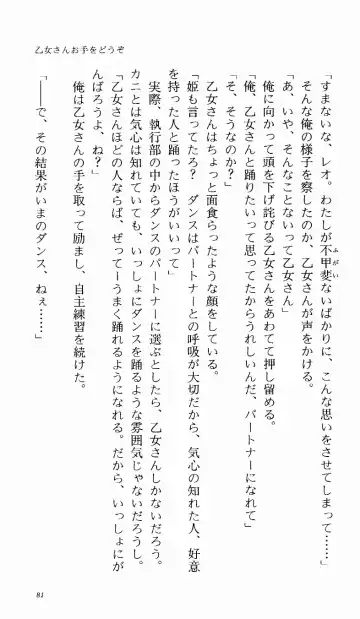 乙女さんお手をどうぞ
「すまないな、レオ。わたしが不甲斐ないばかりに、こんな思いをさせてしまって……」
そんな俺の様子を察したのか、乙女さんが声をかける。
「あ、いや、そんなことないって乙女さん」
俺に向かって頭を下げ詫びる乙女さんをあわてて押し留める。
「俺、乙女さんと踊りたいって思ってたからうれしいんだ、パートナーになれて」
「そ、そうなのか？」
乙女さんはちょっと面食らったような顔をしている。
「姫も言ってたろ？　ダンスはパートナーとの呼吸が大切だから、気心の知れた人、好意
を持った人と踊ったほうがいいって」
実際、執行部の中からダンスのパートナーに選ぶとしたら、乙女さんしかないだろう。
カニとは気心は知れていても、いっしょにダンスを踊るような雰囲気じゃないだろうし。
「乙女さんほどの人ならば、ぜってーうまく踊れるようになれる。だから、いっしょにが
んばろうよ、ね？」
俺は乙女さんの手を取って励まし、自主練習を続けた。
「――で、その結果がいまのダンス、ねぇ……」
81